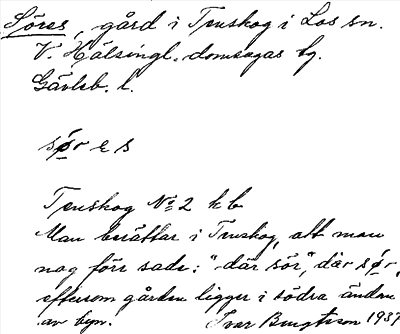 Söres, gård i Tenskog i Los sn.
V. Hälsingl. domsagas tg.
Gävleb. l.
sør e s
Tenskog No 2 k b
Man berättar i Tenskog, att man
nog förr sade: "där sör", där sør,
eftersom gården ligger i södra änden
av byn. Ivar 1937